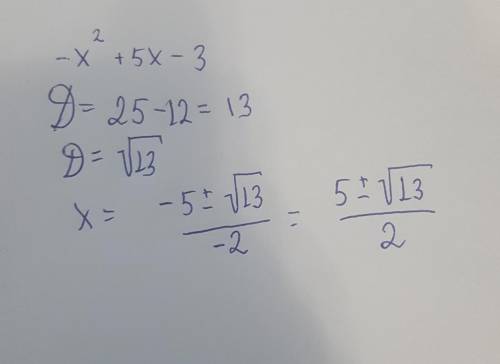 -x² + 5x - 3
D = 25 - 12 = 13
D = √13
x = (-5 ± √13)/(-2) = (5 ± √13)/2